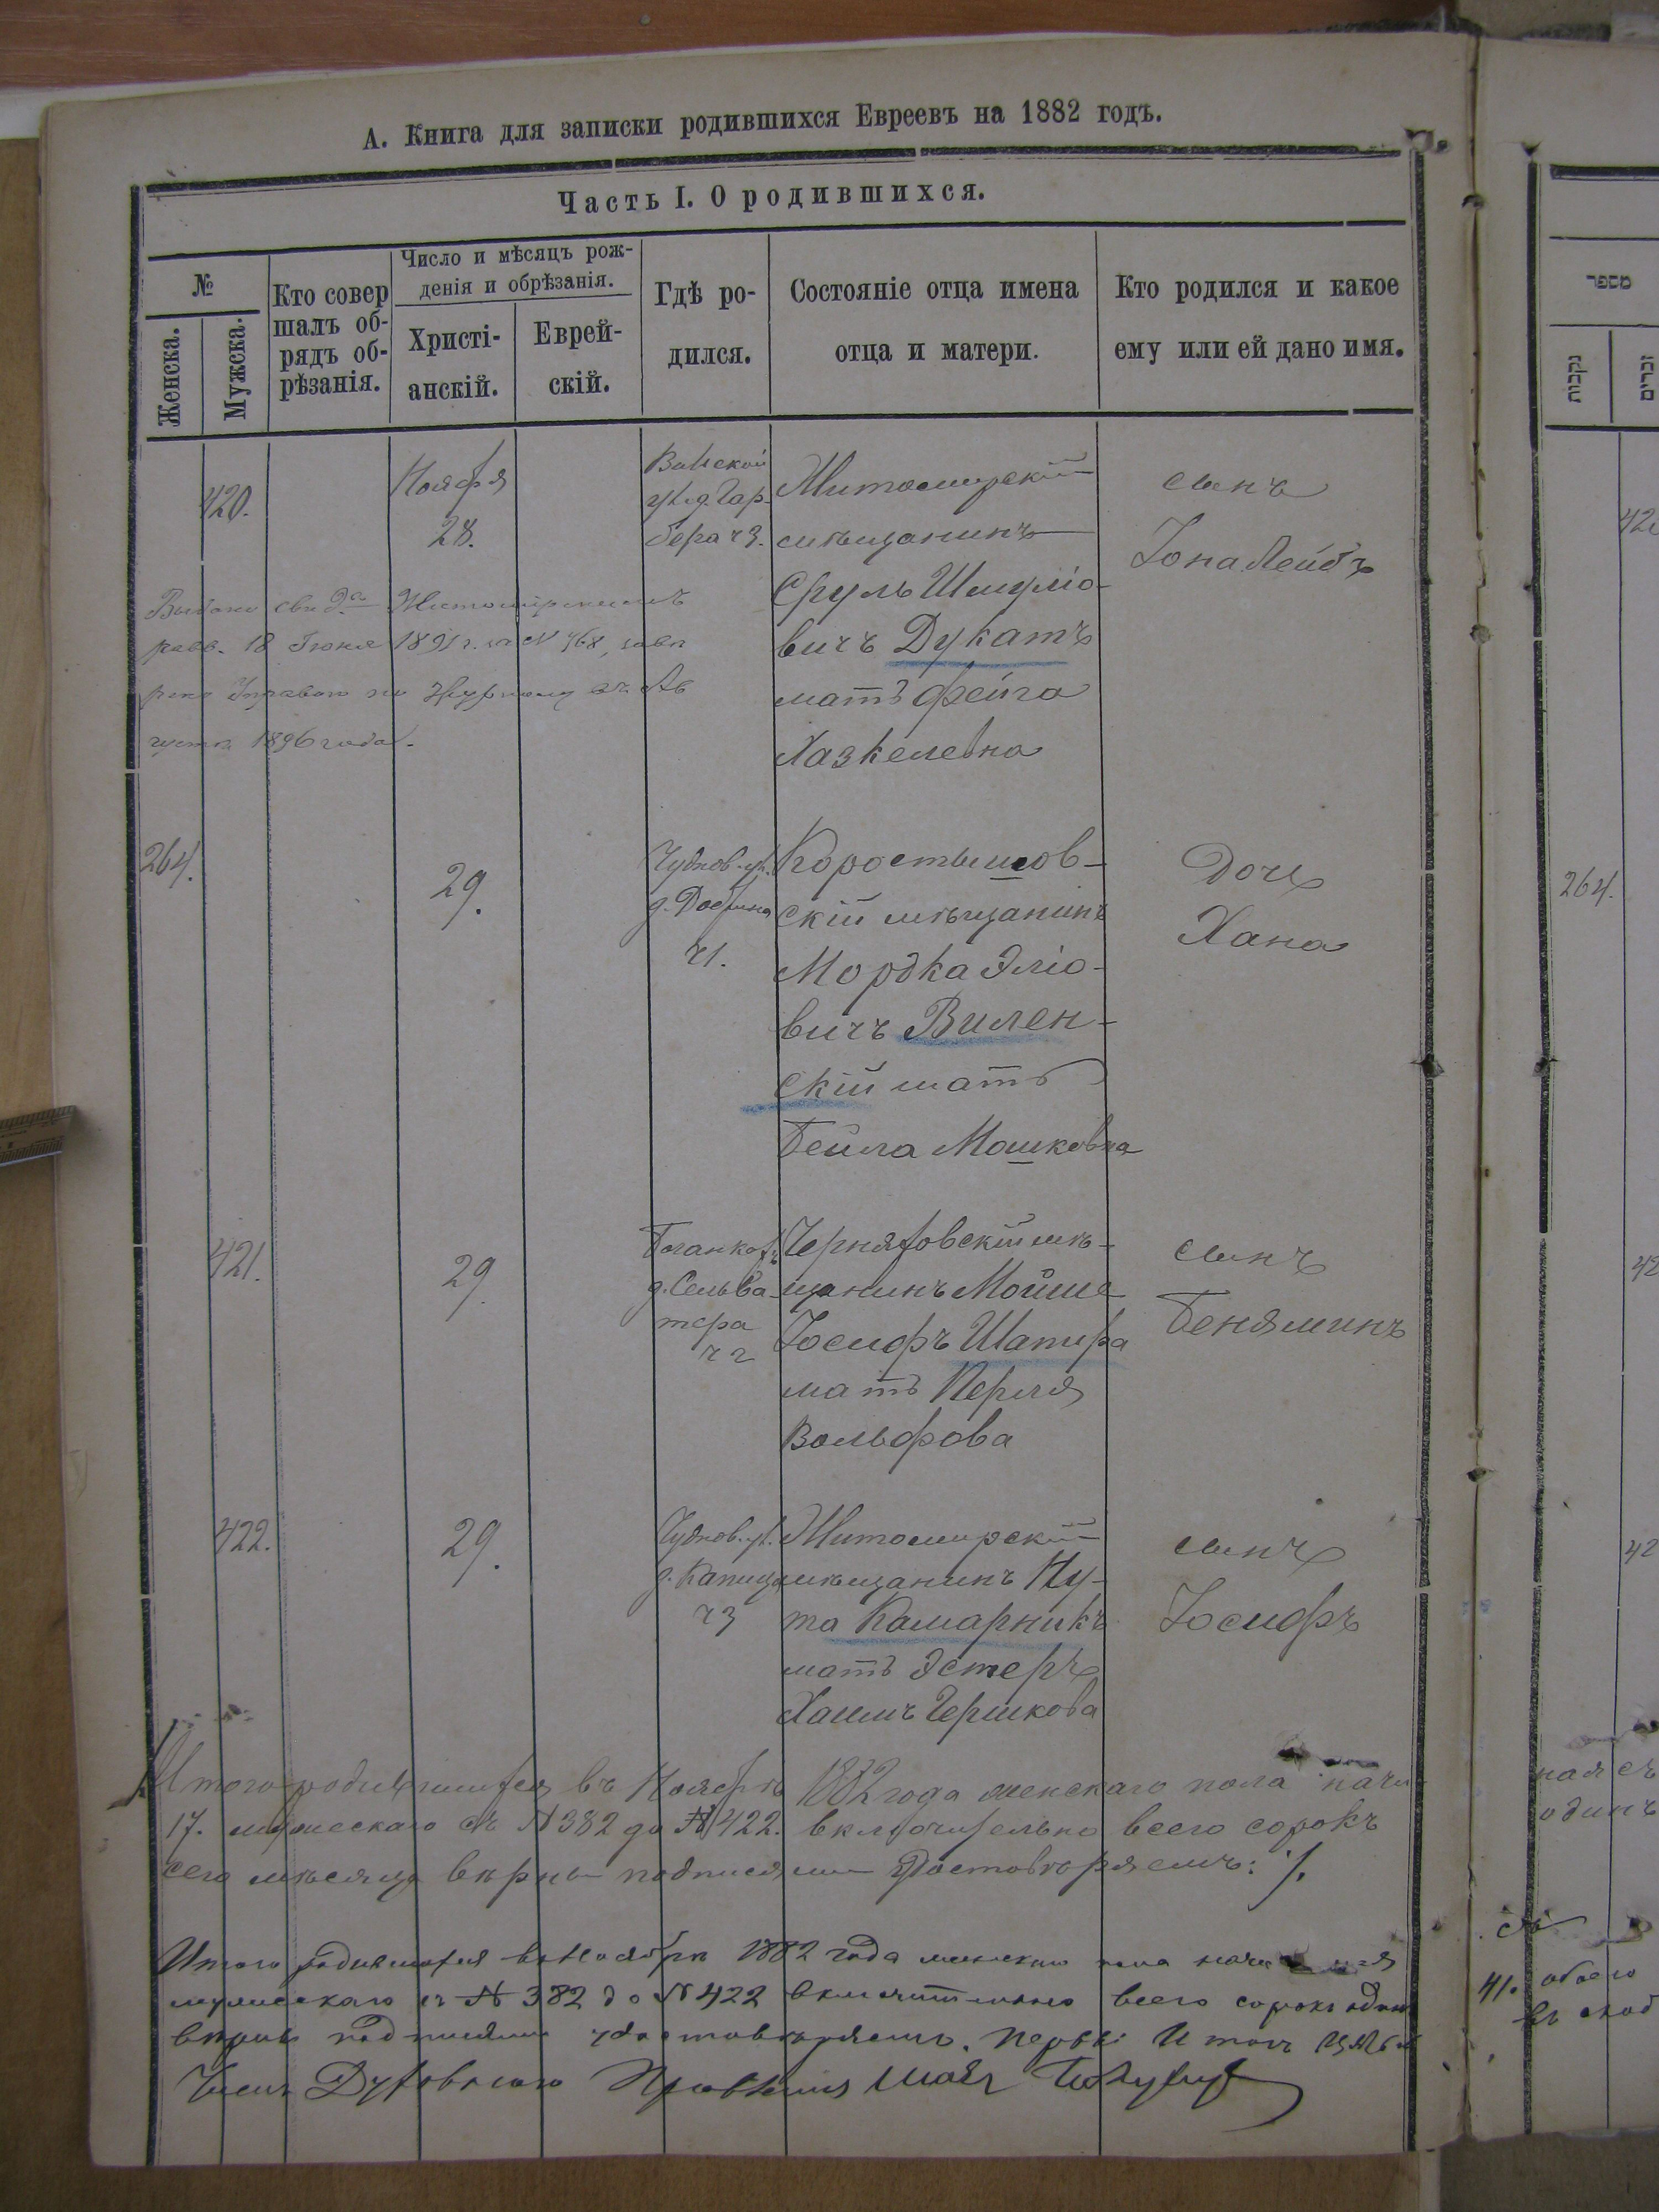 А. Книга для записки родившихся Евреевъ на 1882 годъ.
Часть I. О родившихся.
№
Женска.
Мужска.
Кто совер
шалъ об-
рядъ об-
рѣзанія.
Число и мѣсяцъ рож-
денія и обрѣзанія.
Христі-
анскій.
Еврей-
скій.
Гдѣ ро-
дился.
Состояніе отца имена
отца и матери.
Кто родился и какое
ему или ей дано имя.
420.
Ноября
28.
ул. д. Гар-
бера ч 3.
Житомирскій
мѣщанинъ
Сруль Шмуліо-
вичъ Дукатъ
мать Фейга
Хазкелевна
сынъ
Іона Лейбъ
Житомирскимъ
равв. 18 Іюня 1891 г. за № 468,
1896 года.
264.
29.
Чуднов. ул.
ч 1.
Коростышов-
скій мѣщанинъ
Мордка Эліо-
вичъ Вилен-
скій мать
Бейла Мошковна
Дочь
Хана
421.
29.
д. Сельва-
тера
ч 2
Черняховскій мѣ-
щанинъ Мойше
Іосифъ Шапира
мать Перля
Вольфова
сынъ
Беняминъ
422.
29.
Чуднов. ул.
ч 3
Житомирскій
мѣщанинъ Ну-
та Камарникъ
мать Эстеръ
Хаимъ Гершкова
сынъ
Іосифъ
Итого родившихся въ Ноябрѣ 1882 года женскаго пола начи
17. мужескаго съ № 382 до № 422. включительно всего сорокъ
сего мѣсяца вѣрны подписями удостовѣряемъ:
Итого родившихся въ Ноябрѣ 1882 года женскаго пола
мужескаго съ № 382 до № 422 включительно всего сорокъ один
вѣрны подписями удостовѣряемъ.
Членъ Духовнаго Правленія
מספר
נקבות
זכרים
42
264.
42
42
ная съ
одинъ
41. обоего